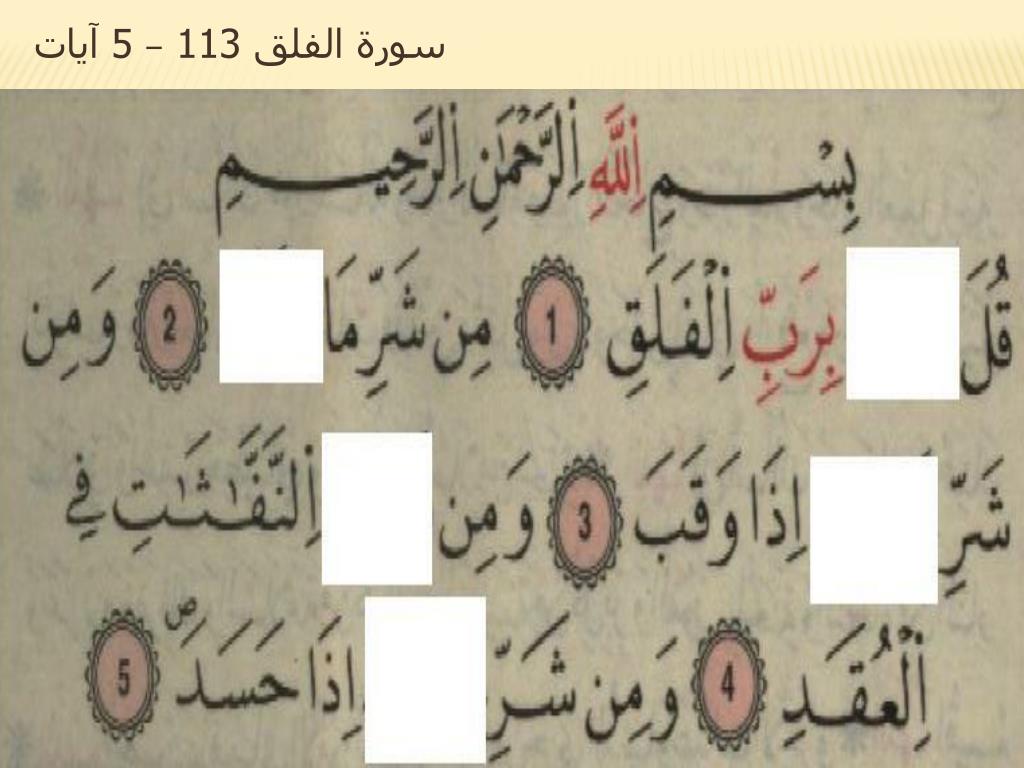 سورة الفلق 113 – 5 آيات
بِسْمِ اِ۬للَّهِ اِ۬لرَّحْمَٰنِ اِ۬لرَّحِيمِ
قُلَ بِرَبِّ اِ۬لْفَلَقِ 1 مِن شَرِّ مَا 2 وَمِن
شَرِّ اِذَا وَقَبَ 3 وَمِن اِ۬لنَّفَّٰثَٰتِ فِے
اِ۬لْعُقَدِ 4 وَمِن شَرِّ اِذَا حَسَدَ ص 5